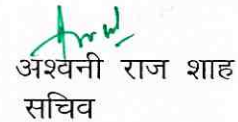 अश्वनी राज शाह
सचिव